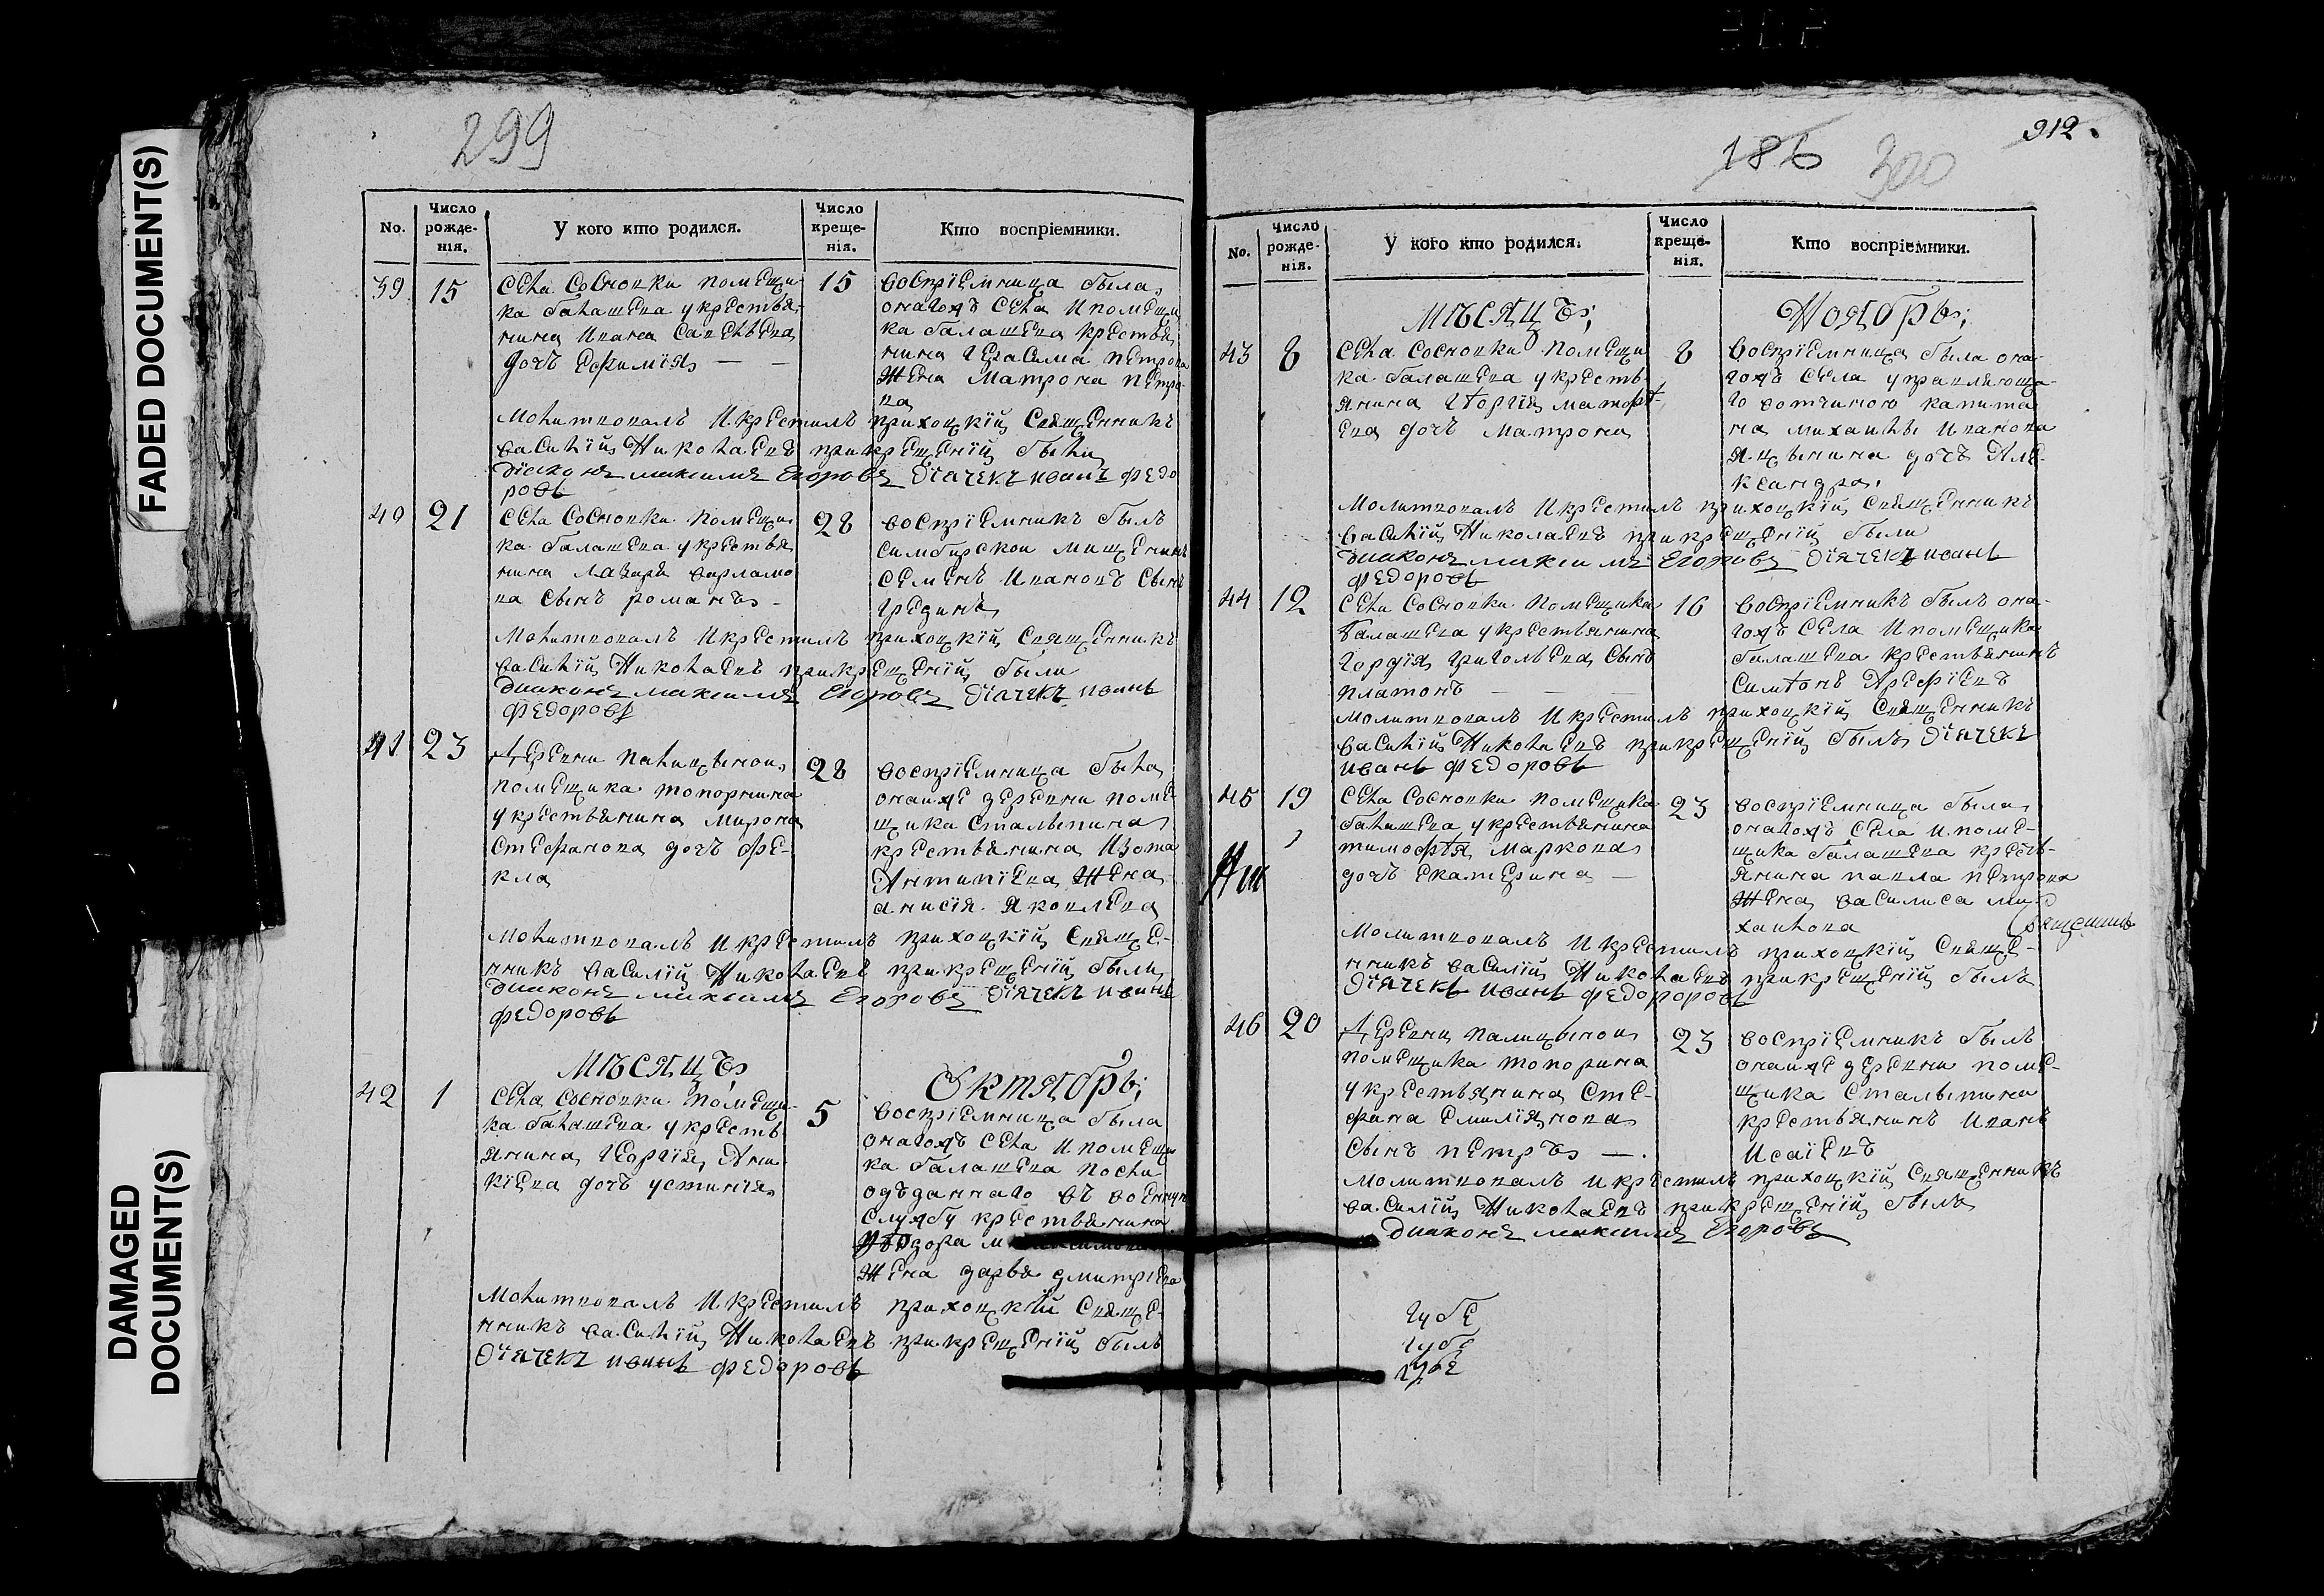 FADED DOCUMENT(S)
DAMAGED DOCUMENT(S)
299
No.
Число рожде-нія.
У кого кто родился.
Число креще-нія.
Кто воспріемники.
39
15
села Сосновки помещи
ка балашева укрестья,
нина Ивана Савельева
дочь Ефимия
15
воспріемница была
оногожъ села Ипомещи
ка балашева крестья
нина Герасима петрова
Жена Матрона петро
ва
Молитвовалъ Икрестилъ приходкій Священникъ
василій Николаевъ прикрещеній были
діаконъ максимъ Егоровъ Дїачекъ иванъ федо
ровъ
40
21
села Сосновки помещи
ка балашева укрестья
нина Лазаря варламо
ва сынъ романъ
28
воспріемникъ былъ
симбирской мищенинъ
семенъ Ивановъ сынъ
грединъ
Молитвовалъ Икрестилъ приходкій Священникъ
василій Николаевъ прикрещеній были
диаконъ максимъ Егоровъ Дїачекъ иванъ
федоровъ
41
23
Деревни палицыной
помещика топорнина
укрестьянина Мирона
стефанова дочъ фе-
кла
28
воспріемница была
онаиже деревни поме
щика столыпина
крестьянина Изота
Антипїева Жена
анисія Яковлева
Молитвовалъ Икрестилъ приходкій Свяще-
нникъ василій Николаевъ прикрещеній были
диаконъ максимъ Егоровъ Дїячекъ иванъ
федоровъ
Мѣсяцъ
Октябрь;
42
1
села Сосновки помещи-
ка балашева укресть
янина Георгія Ани
кїева дочъ устинія
5
воспріемница была
оногожъ села Ипомещи
ка балашева посли
одъданнаго въ военную
службу крестьянина
Жена дарья дмитріева
Молитвовалъ Икрестилъ приходкій Свяще-
нникъ василій Николаевъ прикрещеній былъ
Дїячекъ иванъ федоровъ
186
300
912.
No.
Число рожде-нія.
У кого кто родился.
Число креще-нія.
Кто воспріемники.
Мѣсяцъ;
Ноябрь;
43
8
села Сосновки помещи
ка балашева укресть
янина Георгія матфѣ-
ева дочъ Матрона
8
воспріемница была оно-
гожъ села управляюща-
го вотчиною капита
на михаилы Иванова
яцынина дочъ Але
ксандра.
Молитвовалъ Икрестилъ приходкій Священникъ
василій Николаевъ прикрещеній были
диаконъ максимъ Егоровъ Дїячекъ иванъ
федоровъ
44
12
села Сосновки помещика
балашева укрестьянина
гордія григорьева сынъ
платонъ
16
воспріемникъ былъ оно-
гожъ села Ипомещика
балашева крестьянинъ
Симіонъ Арефїевъ
молитвовалъ Икрестилъ приходкій Священникъ
василій Николаевъ прикрещеній былъ Дїячекъ
иванъ федоровъ
45
19
села Сосновки помещика
балашева укрестьянина
тимофѣя Маркова
дочъ екатерина
23
воспріемница была
оногожъ села Ипоме-
щика балашева кресть-
янина павла петрова
Жена василиса ми-
хаилова
Молитвовалъ Икрестилъ приходкій Свяще-
нникъ василій Николаевъ прикрещеній былъ
Дїячекъ иванъ федороровъ
46
20
Деревни палицыной
помещика топорнина
укрестьянина Сте-
фана емиліянова
сынъ петръ
23
воспріемникъ былъ
онаиже деревни поме-
щика Столыпина
крестьянинъ Иванъ
Исаіевъ
молитвовалъ Икрестилъ приходкій Священникъ
василій Николаевъ прикрещеній былъ
диаконъ максимъ Егоровъ
губе
губе
губе